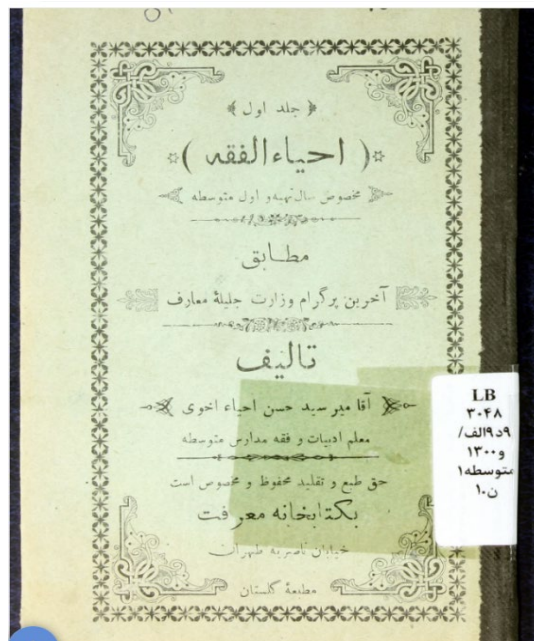 ﴿ جلد اول ﴾
( احیاءالفقه )
مخصوص سال تهیه و اول متوسطه
مطابق
آخرین پرگرام وزارت جلیلهٔ معارف
تالیف
آقا میر سید حسن احیاء اخوی
معلم ادبیات و فقه مدارس متوسطه
حق طبع و تقلید محفوظ و مخصوص است
بکتابخانه معرفت
خیابان ناصریه طهران
مطبعهٔ گلستان
LB
۳۰۴۸
۹د۹الف/
و۱۳۰۰
متوسطه۱
ن.۱